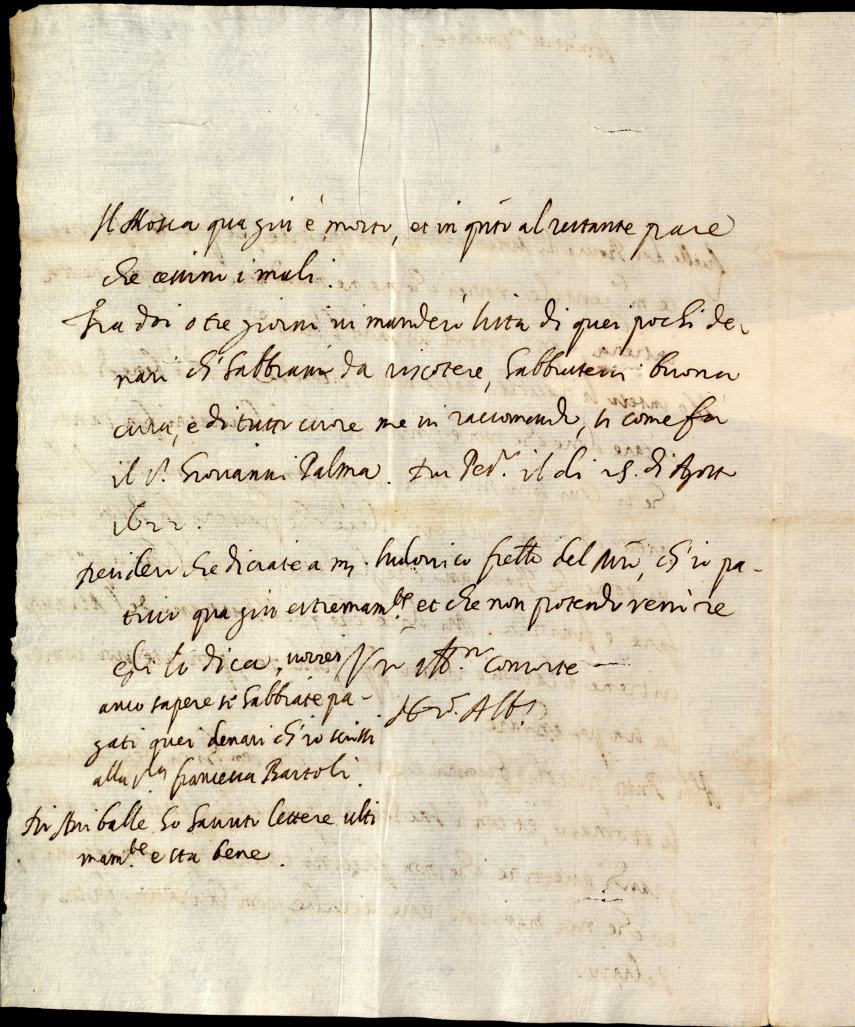 Il Mosca qua giu è morto, et in q̃sto al restante pare
che cessino i mali.
Fra doi o tre giorni vi manderò lista di quei pochi de-
nari ch'habbiam da riscotere, habbiateni buona
cura, e di tutto cuore me vi raccomando, si come fa
il s.r Giovanni Palma. Di Ped.o il di 25. di Agosto
1622.
desidero che diciate a m. ludovico fratello del , ch'io pa-
tisco qua giu estremam.te et che non potendo venire
egli lo dica, vorrei V.ro consorte
anco sapere se habbiate pa-
gati quei denari ch'io scrissi
alla s.ra francesca Bartoli.
di Aniballe ho havuto lettere ulti
mam.te e sta bene.